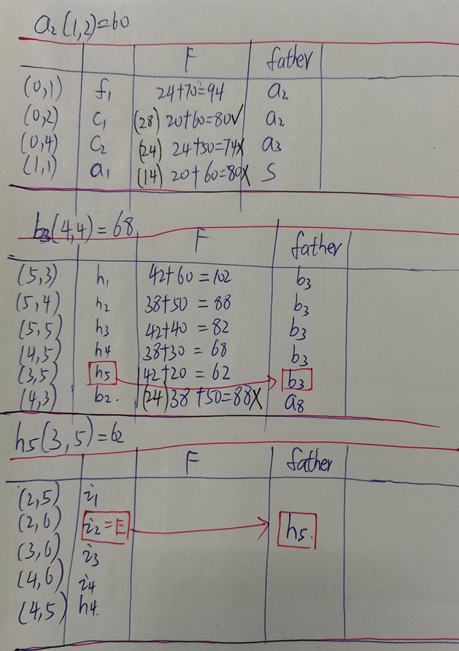 a₂(1,2)=60
F father
(0,1) f₁ 24+70=94 a₂
(0,2) c₁ (28) 20+60=80√ a₂
(0,4) c₂ (24) 24+50=74× a₃
(1,1) a₁ (14) 20+60=80× S
b₃(4,4)=68
F father
(5,3) h₁ 42+60=102 b₃
(5,4) h₂ 38+50=88 b₃
(5,5) h₃ 42+40=82 b₃
(4,5) h₄ 38+30=68 b₃
(3,5) h₅ 42+20=62 b₃
(4,3) b₂. (24)38+50=88× a₈
h₅(3,5)=62
F father
(2,5) i₁
(2,6) i₂=E h₅.
(3,6) i₃
(4,6) i₄
(4,5) h₄.